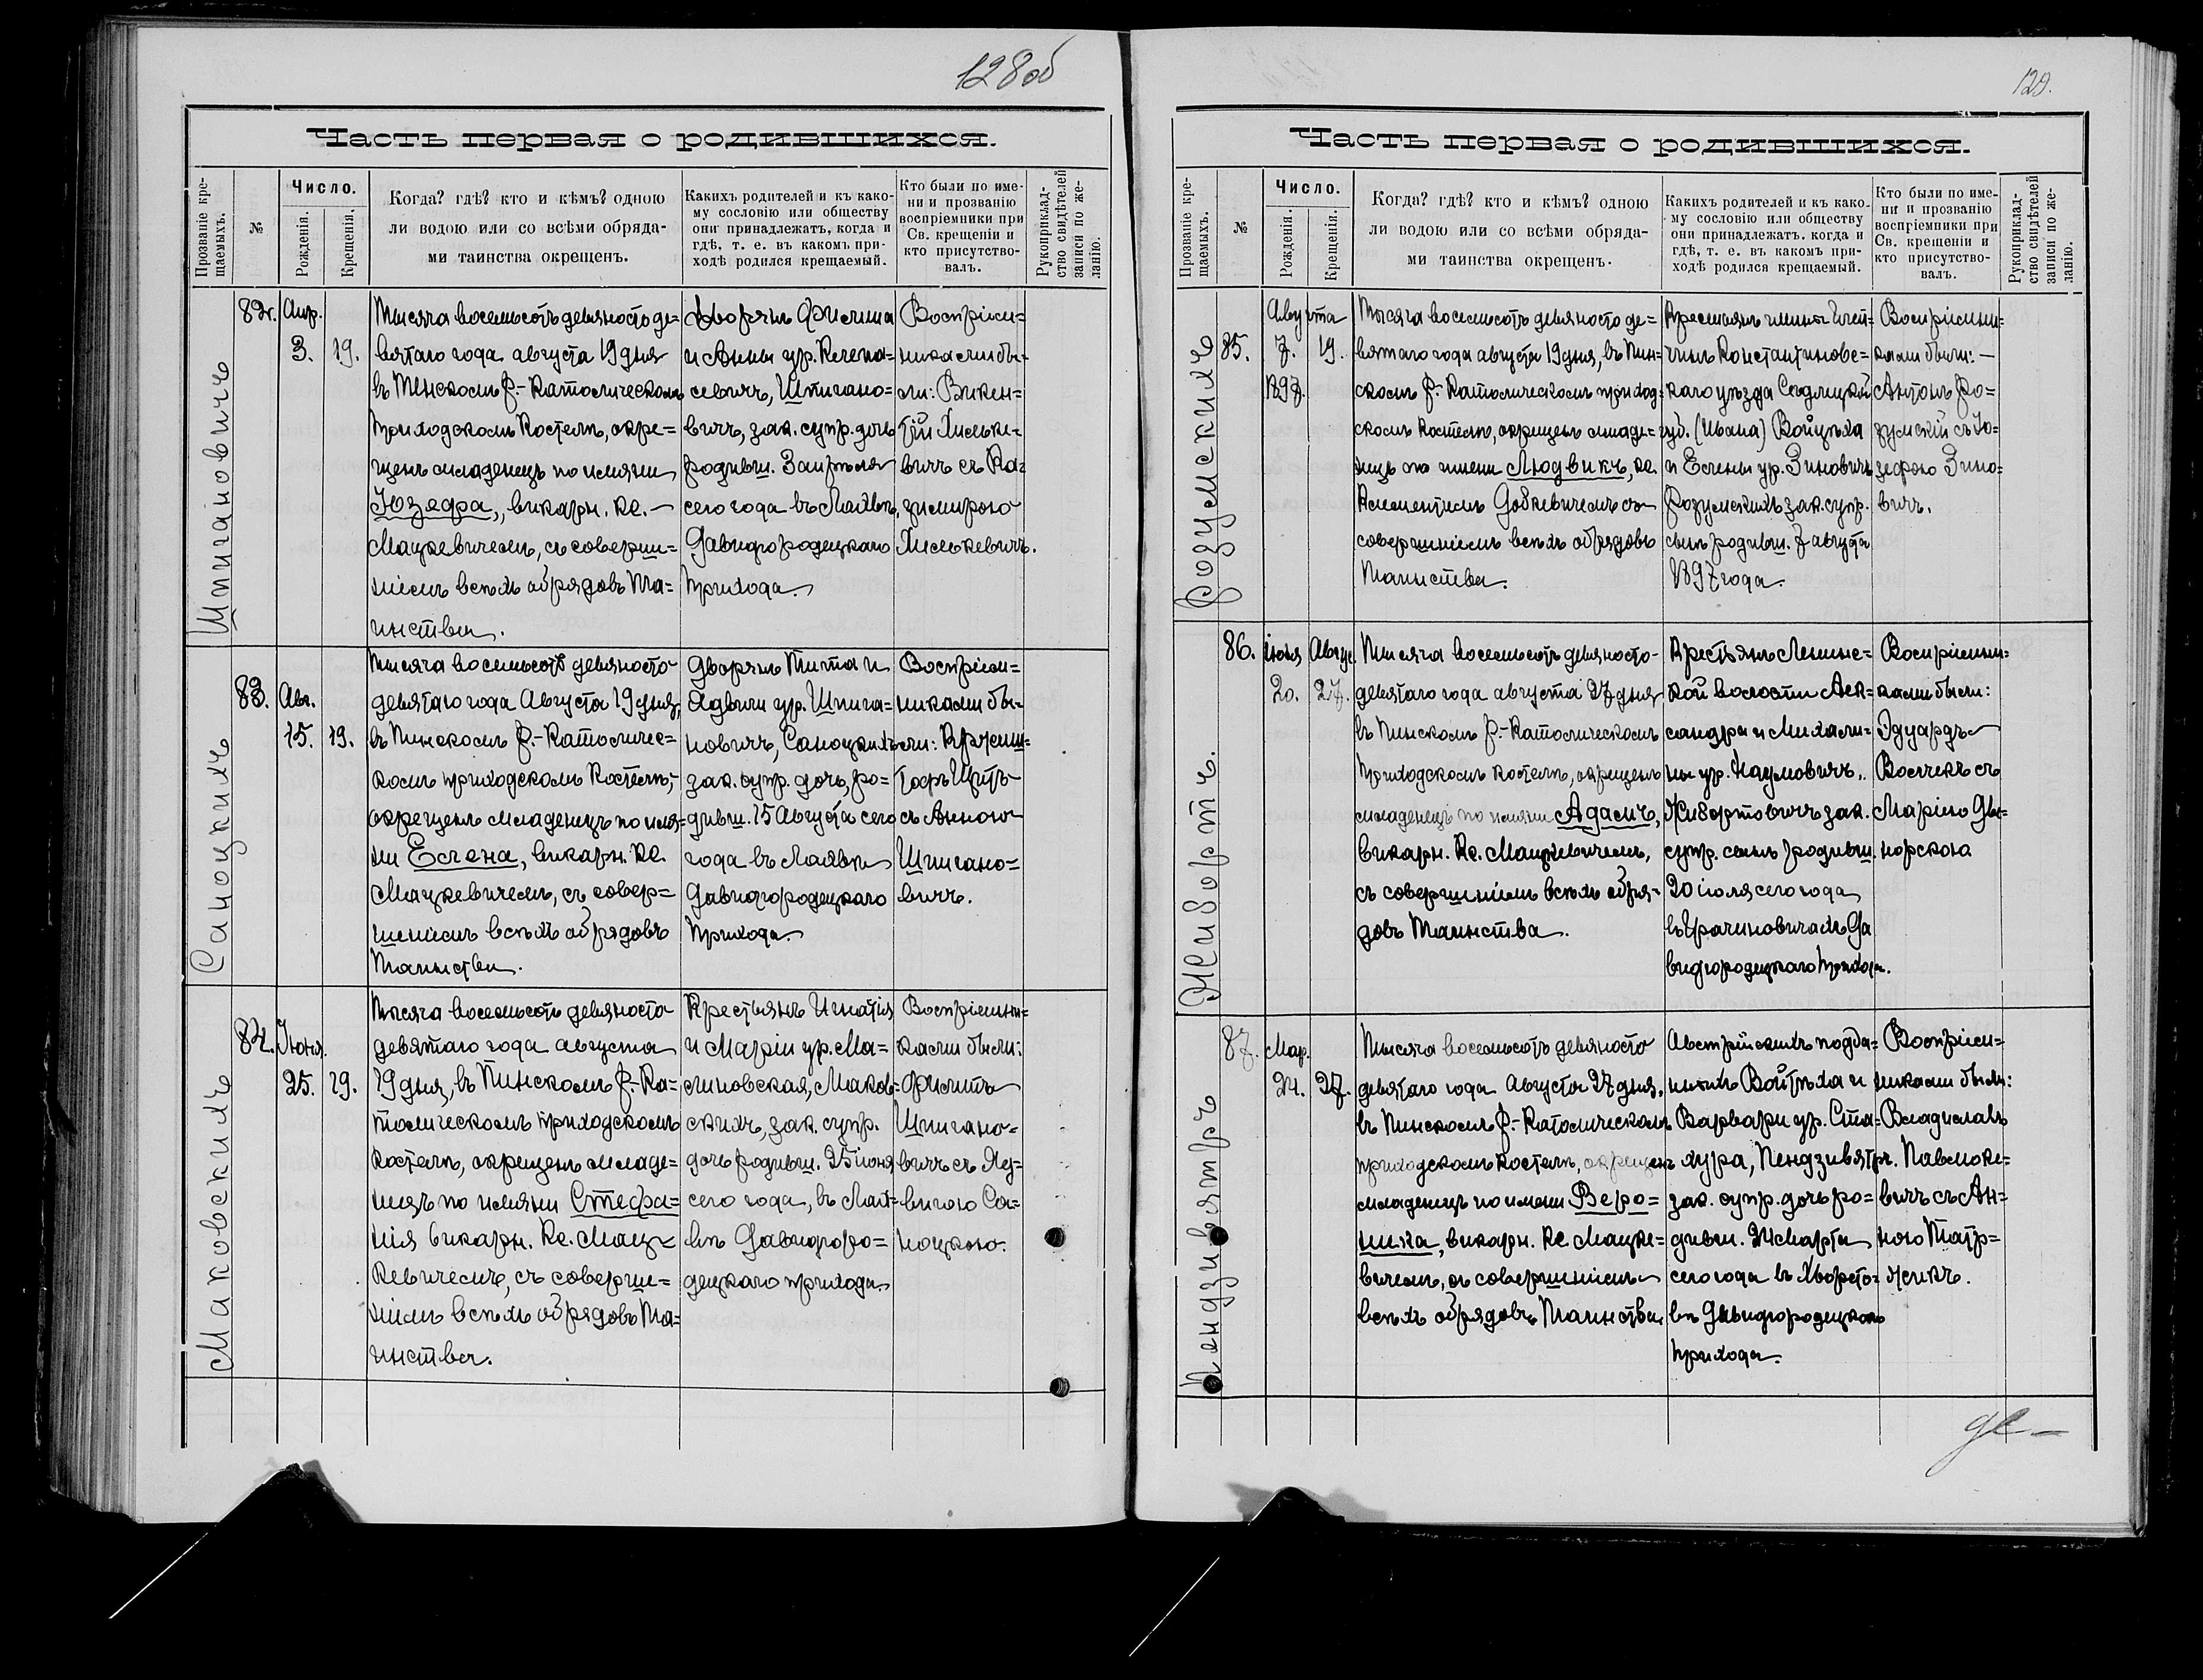 128 об
Часть первая о родившихся.
Прозваніе кре-
щаемыхъ.
№
Число.
Рожденія.
Крещенія.
Когда? гдѣ? кто и кѣмъ? одною
ли водою или со всѣми обряда-
ми таинства окрещенъ.
Какихъ родителей и къ како-
му сословію или обществу
они принадлежатъ, когда и
гдѣ, т. е. въ какомъ при-
ходѣ родился крещаемый.
Кто были по име-
ни и прозванію
воспріемники при
Св. крещеніи и
кто присутство-
валъ.
Рукоприклад-
ство свидѣтелей
записи по же-
ланію.
Шпигановичъ
82.
Апр.
3. 19.
Тысяча восемьсотъ девяносто де=
вятаго года августа 19 дня
въ Пинскомъ Р.-Католическомъ
приходскомъ Костелѣ, окре=
щенъ младенецъ по имяни
Юзефа, викарн. Кс.-
Мацкевичемъ, съ соверш=
ніемъ всѣхъ обрядовъ Та=
инства.
Дворянъ Филипа
и Анны ур.
севичъ, Шпигано=
вичъ, зак. супр. дочь
родивш. 3 апрѣля
сего года въ Малвѣ,
Давидгородецкаго
прихода.
Воспріем=
никами бы=
ли: Викен=
тій Хильке=
вичъ съ Ка=
зимирою
Хилькевичъ.
Саноцкихъ
83.
Авг.
15. 19.
Тысяча восемьсотъ девяносто
девятаго года Августа 19 дня,
въ Пинскомъ Р.-Католичес=
комъ приходскомъ Костелѣ,
окрещенъ младенецъ по имя=
ни Елена, викарн. Кс.
Мацкевичемъ, съ совер=
шеніемъ всѣхъ обрядовъ
Таинства.
Дворянъ Тита и
Ядвиги ур. Шпига=
новичъ, Саноцкихъ
зак. супр. дочь, ро=
дивш. 15 Августа сего
года въ Малвѣ
Давидгородецкаго
прихода.
Воспріем=
никами бы=
ли: Криш=
тофъ Щитъ
съ Анною
Шпигано=
вичъ.
Маковскихъ
84.
Іюня.
25. 19.
Тысяча восемьсотъ девяноста
девятаго года августа
19 дня, въ Пинскомъ Р.-Ка=
толическомъ приходскомъ
Костелѣ, окрещенъ младе=
нецъ по имяни Стефа=
нія викарн. Кс. Мац=
кевичемъ, съ соверш=
ніемъ всѣхъ обрядовъ Та=
инства.
Крестьянъ Игнатія
и Маріи ур. Ма=
линовская, Маков=
скихъ, зак. супр.
дочь родивш. 25 іюня
сего года, въ Мал=
вѣ Давидгоро=
децкаго прихода.
Воспріемни=
ками были:
Филипъ
Шпигано=
вичъ съ Яд=
вигою Са=
ноцкою.
129.
Часть первая о родившихся.
Прозваніе кре-
щаемыхъ.
№
Число.
Рожденія.
Крещенія.
Когда? гдѣ? кто и кѣмъ? одною
ли водою или со всѣми обряда-
ми таинства окрещенъ.
Какихъ родителей и къ како-
му сословію или обществу
они принадлежатъ. когда и
гдѣ, т. е. въ какомъ при-
ходѣ родился крещаемый.
Кто были по име-
ни и прозванію
воспріемники при
Св. крещеніи и
кто присутство-
валъ.
Рукоприклад-
ство свидѣтелей
записи по же-
ланію.
Розумскихъ
85.
Августа
7. 19.
1897.
Тысяча восемьсотъ девяносто де=
вятаго года августа 19 дня, въ Пин=
скомъ Р.-Католическомъ приход=
скомъ Костелѣ, окрещенъ младе=
нецъ по имени Людвикъ, Кс.
Клементіемъ Добкевичемъ съ
совершніемъ всѣхъ обрядовъ
Таинства.
Крестьянъ гмины
Константинове=
каго уѣзда Сѣдлецкой
губ. (Ивана) Войцѣха
и Елены ур. Зиновичъ
Розумскихъ зак. супр.
сынъ родивш. 7 августа
1897 года.
Воспріемни=
ками были: —
Антонъ Ро=
зумскій съ Ю=
зефою Зино=
вичъ.
Живортъ.
86.
іюля Авгус.
20. 27.
Тысяча восемьсотъ девяносто-
девятаго года августа 27 дня
въ Пинскомъ Р.-Католическомъ
приходскомъ костелѣ, окрещенъ
младенецъ по имяни Адамъ,
викарн. Кс. Мацкевичемъ,
съ совершніемъ всѣхъ обря=
довъ Таинства.
Крестьянъ Ленине=
кой волости Алек=
сандра и Михали=
ны ур. Наумовичъ,
Живортовичъ зак.
супр. сынъ родивш.
20 іюля сего года
въ Грачиновичахъ Да
видгородецкаго прихода.
Воспріемни=
ками были:
Эдуардъ
Волчекъ съ
Маріею Дви=
норскою
Пендзивятръ
87.
Мар.
24. 27.
Тысяча восемьсотъ девяносто
девятаго года Августа 27 дня,
въ Пинскомъ Р.-Католическомъ
приходскомъ костелѣ, окрещенъ
младенецъ по имени Веро=
ника, викарн. Кс Мацке=
вичемъ, съ совершніемъ
всѣхъ обрядовъ Таинства.
Австрійскихъ подда=
ныхъ Войтѣха и
Варвары ур. Ста=
хура, Пендзивятръ.
зак. супр. дочь ро=
дивш. 24 Марта
сего года въ Хворсто=
вѣ Давидгородецкаго
прихода.
Воспріем=
никами были:
Владиславъ
Павлюке=
вичъ съ Ан=
ною Патр=